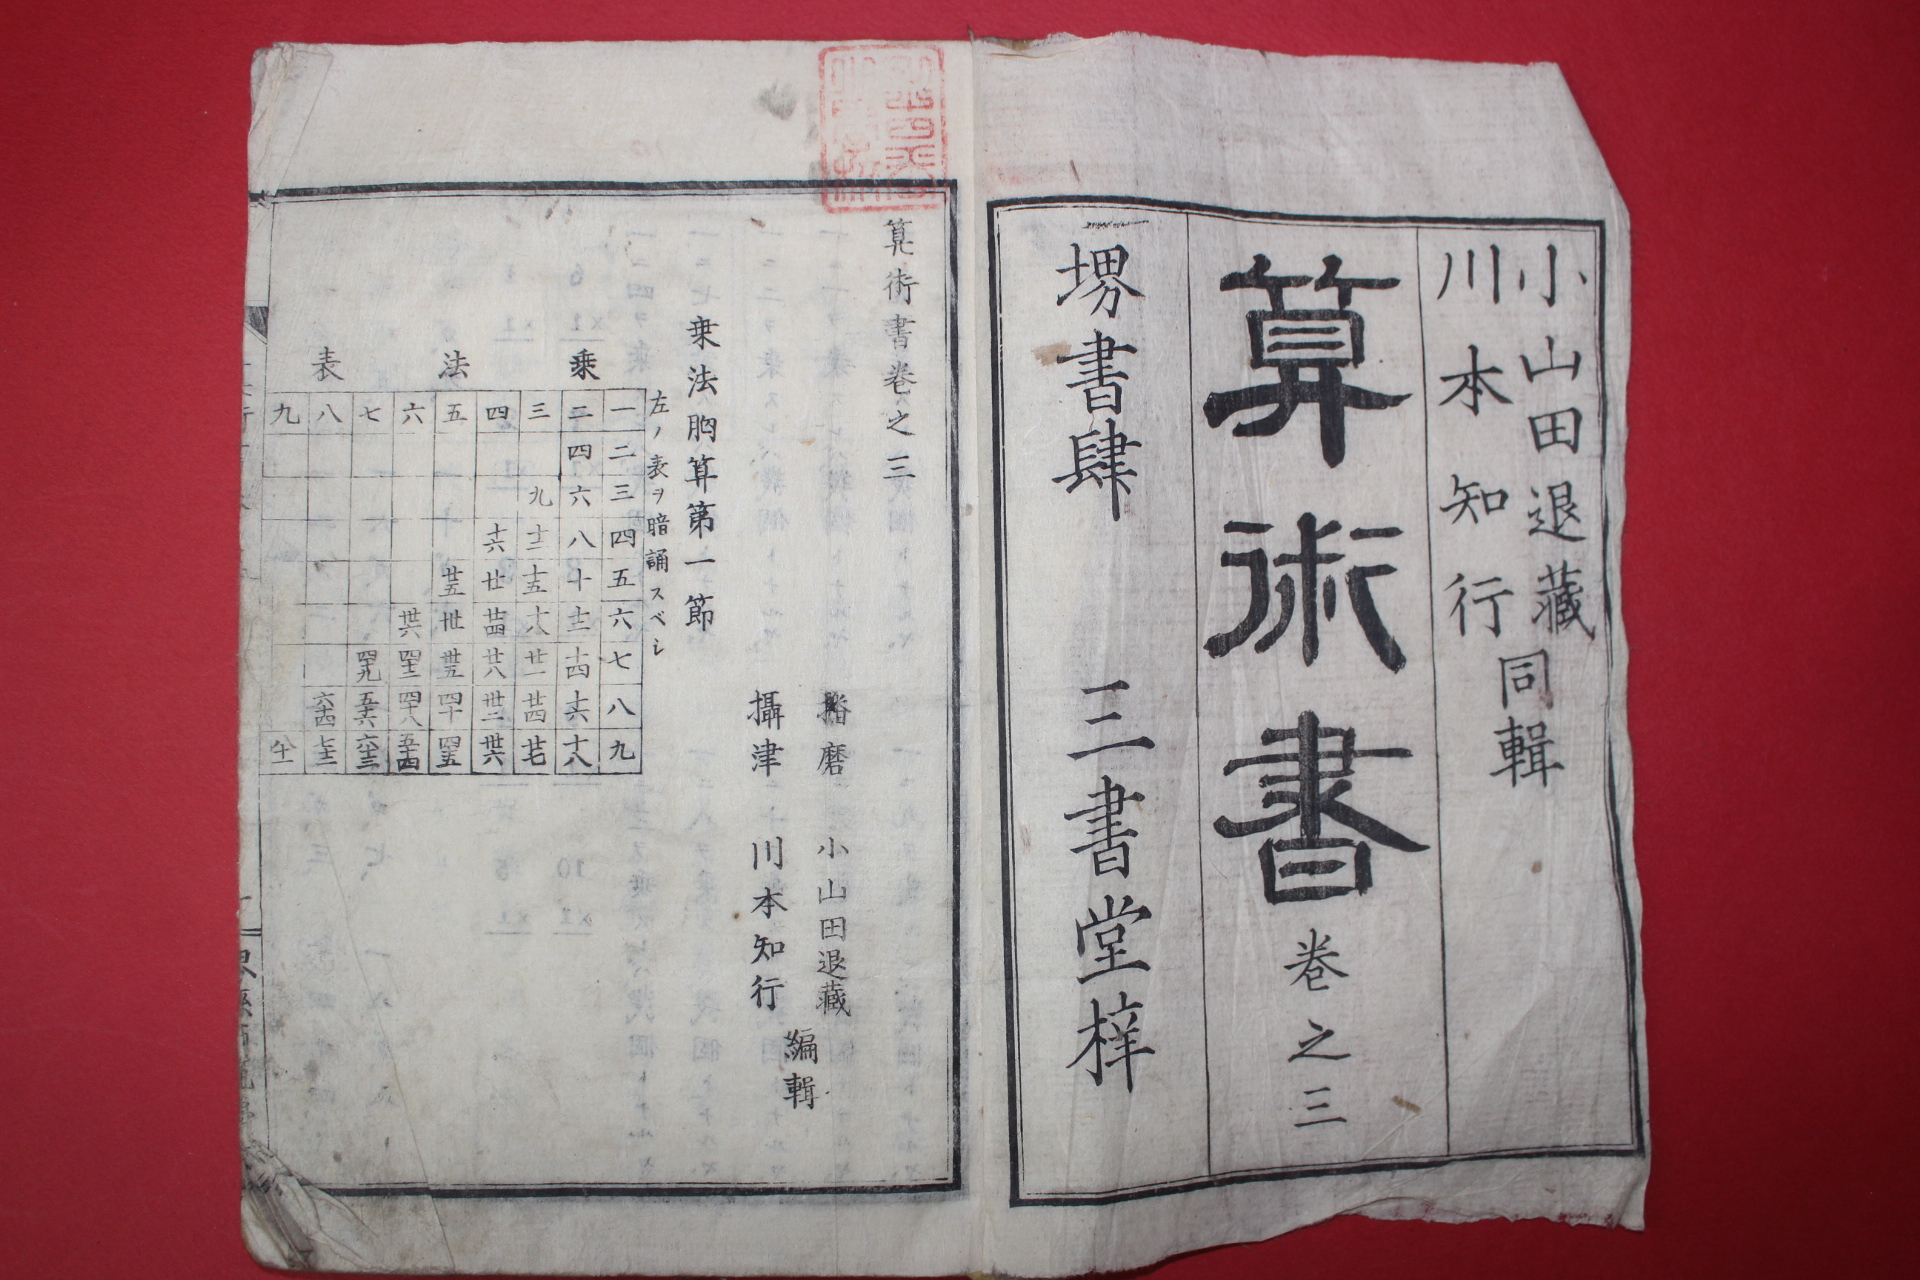 小山田退藏
川本知行
同輯
算術書
卷之三
堺書肆
三書堂梓
算術書卷之三
播磨
小山田退藏
攝津
川本知行
編輯
乗法胸算第一節
左ノ表ヲ暗誦スベシ
乗法表
一 二 三 四 五 六 七 八 九
二 四 六 八 十 十二 十四 十六 十八
三 九 十二 十五 十八 廿一 廿四 廿七
四 十六 廿 廿四 廿八 卅二 卅六
五 廿五 卅 卅五 四十 四五
六 卅六 四二 四十八 五十四
七 四九 五十六 六十三
八 六十四 七十二
九 八十一